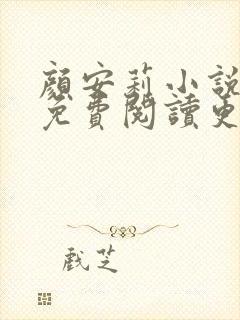 顏安莉小說
免費閱讀更
戲芝